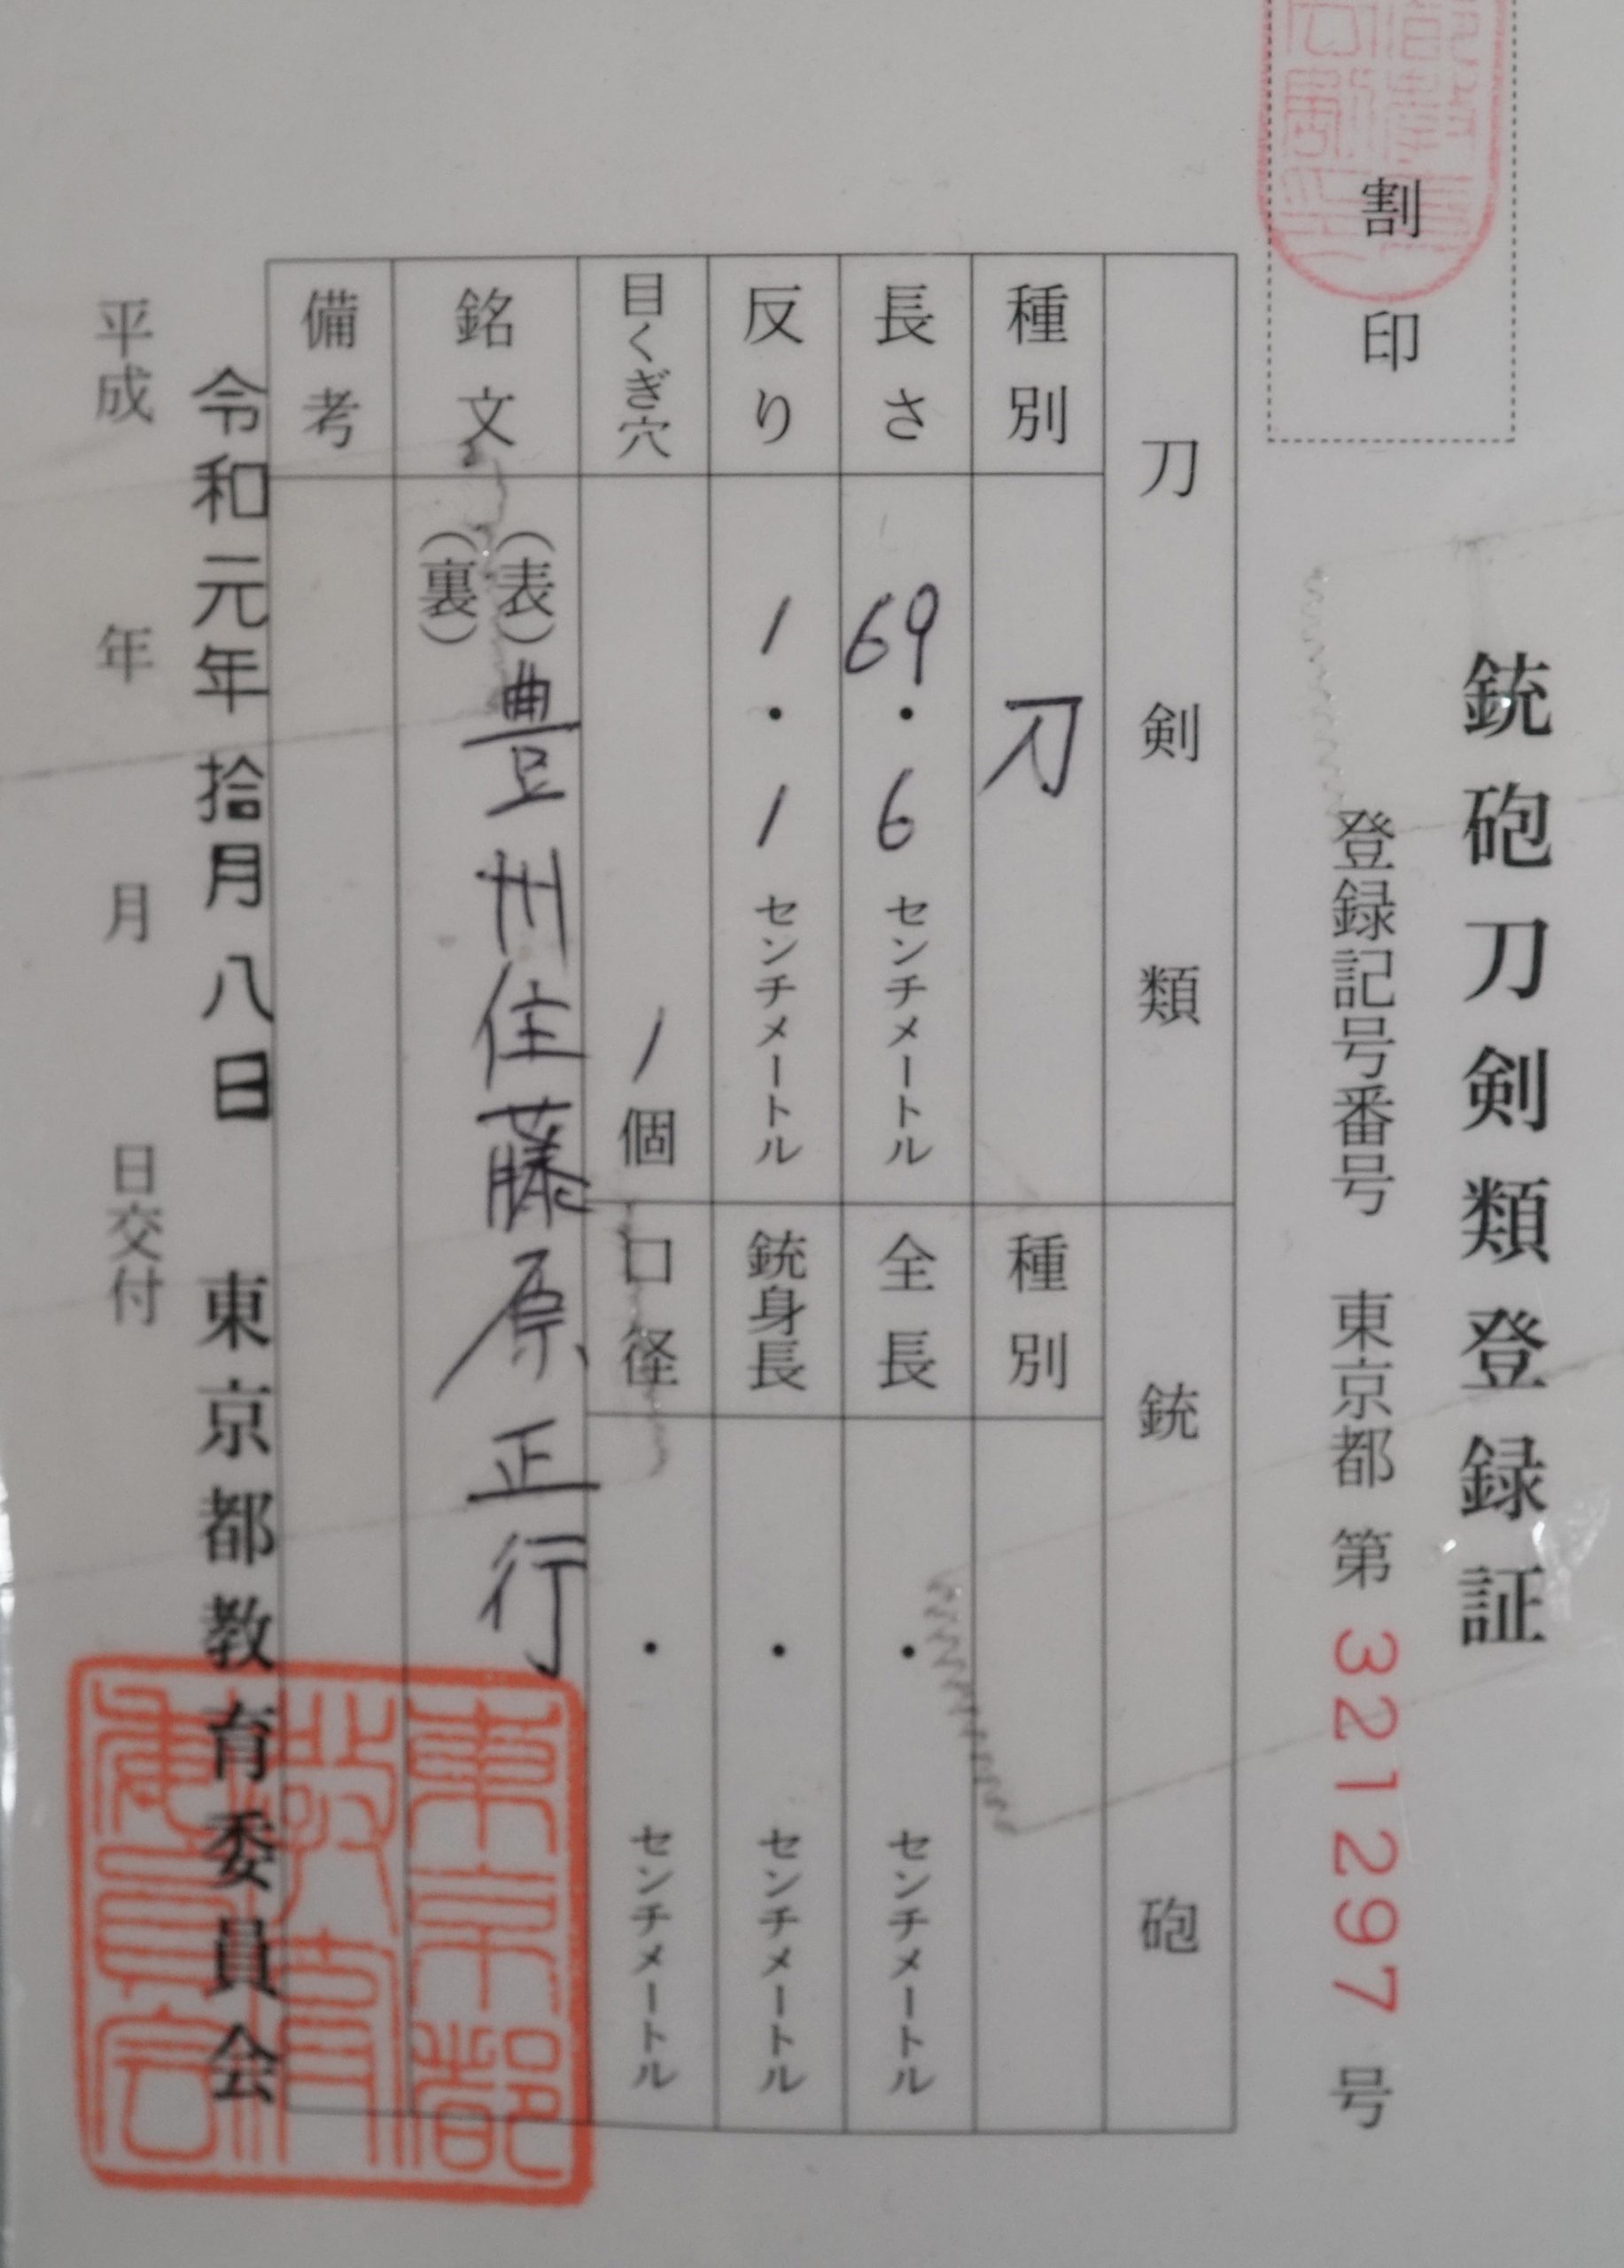 銃砲刀剣類登録証
割印
登録記号番号 東京都 第 321297 号
刀剣類 銃砲
種別 刀 種別
長さ 69.6 センチメートル 全長 ・ センチメートル
反り 1.1 センチメートル 銃身長 ・ センチメートル
目くぎ穴 1個 口径 ・ センチメートル
銘文 (表) 豊州住藤原正行
(裏)
備考
令和元年拾月八日 東京都教育委員会
平成 年 月 日交付
東京都
教育
委員会